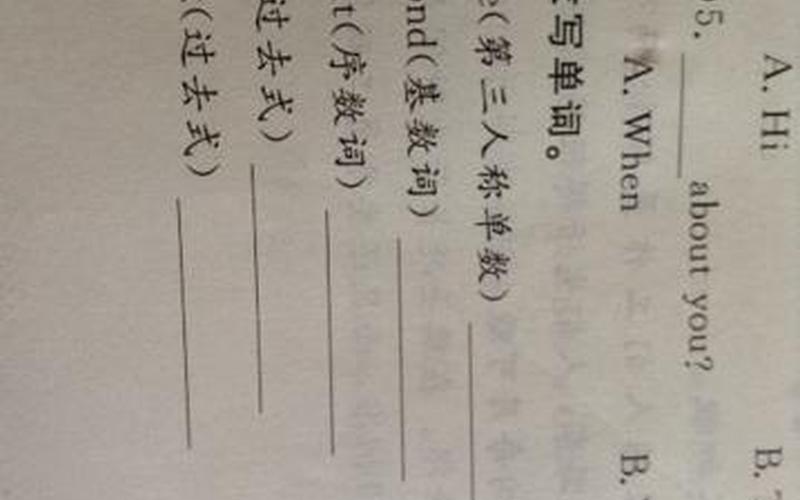 A. Hi B.
5. about you?
A. When B.
写单词。
e(第三人称单数)
nd(基数词)
t(序数词)
过去式)
(过去式)